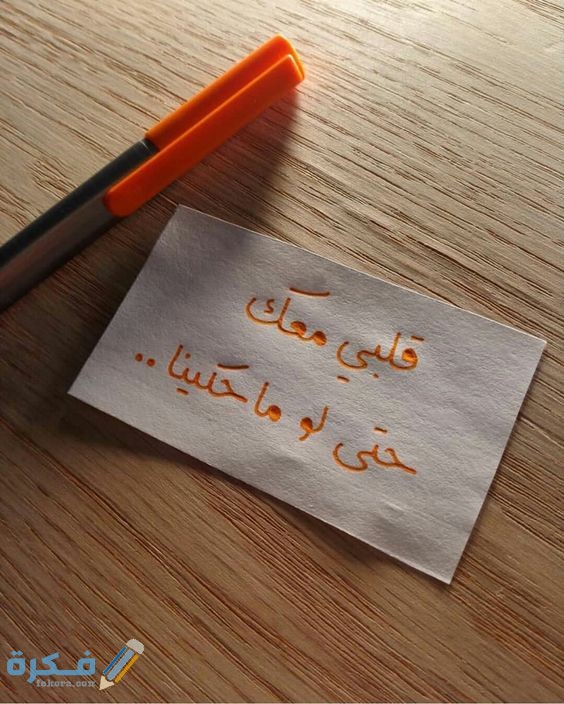 قلبي معك
حتى لو ما حكينا ..
فكرة
fekera.com